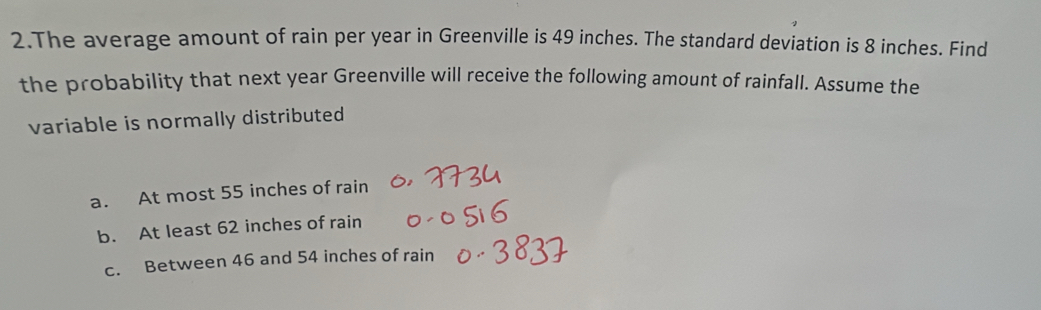 2.The average amount of rain per year in Greenville is 49 inches. The standard deviation is 8 inches. Find
the probability that next year Greenville will receive the following amount of rainfall. Assume the
variable is normally distributed
a. At most 55 inches of rain 0.7734
b. At least 62 inches of rain 0.0516
c. Between 46 and 54 inches of rain 0.3837